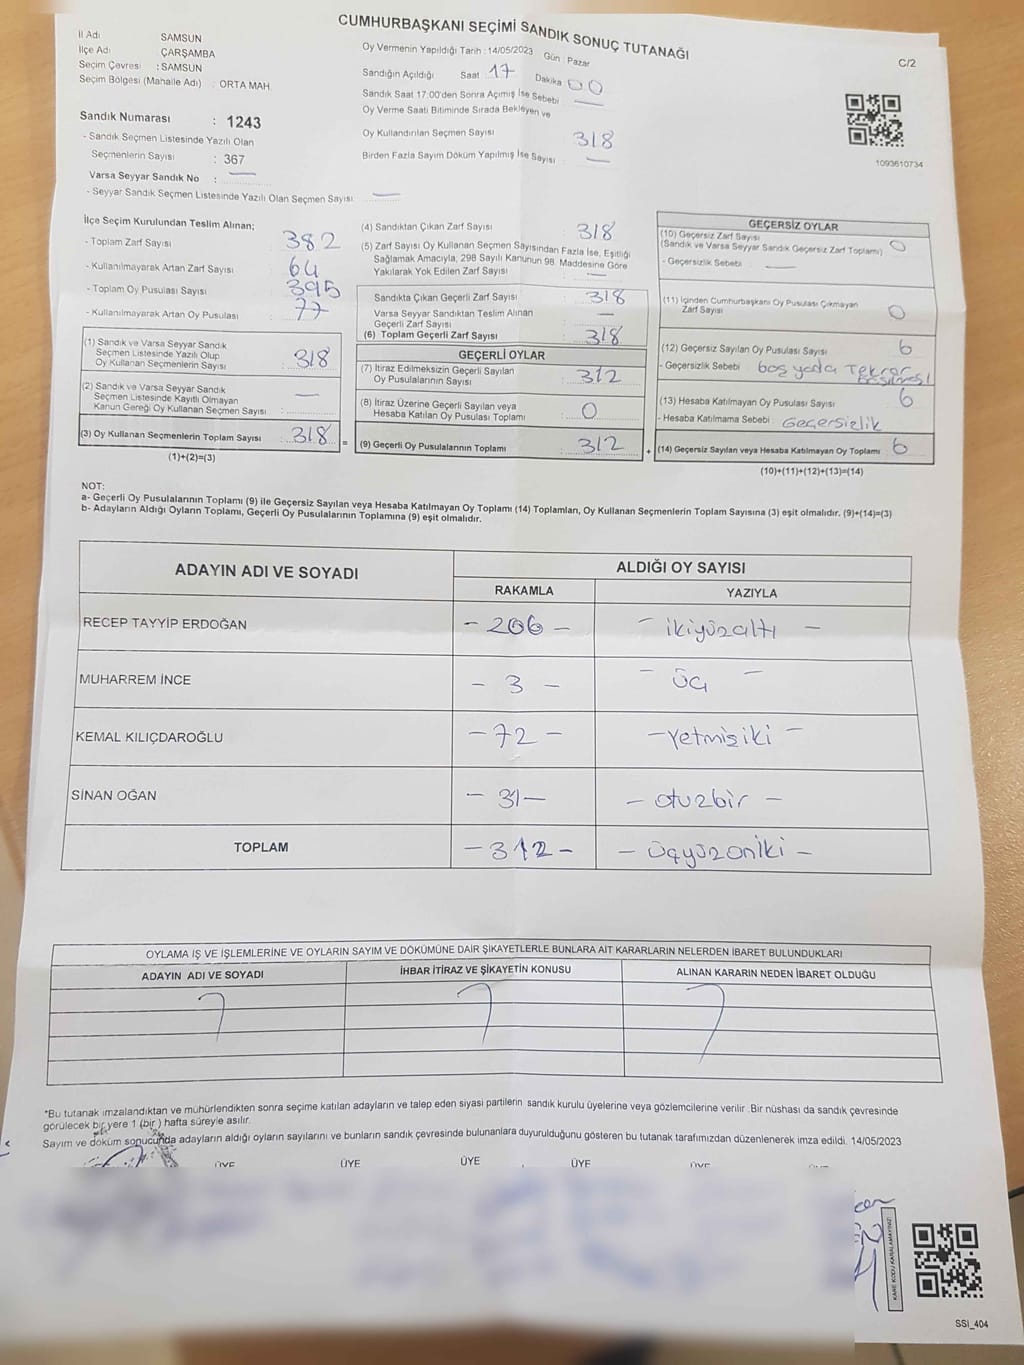 CUMHURBAŞKANI SEÇİMİ SANDIK SONUÇ TUTANAĞI
C/2
İl Adı SAMSUN
İlçe Adı ÇARŞAMBA
Seçim Çevresi : SAMSUN
Seçim Bölgesi (Mahalle Adı) : ORTA MAH
Oy Vermenin Yapıldığı Tarih : 14/05/2023 Gün : Pazar
Sandığın Açıldığı Saat : 17 Dakika 00
Sandık Saat 17.00'den Sonra Açımış İse Sebebi —
Oy Verme Saati Bitiminde Sırada Bekleyen ve
Oy Kullandırılan Seçmen Sayısı 318
Birden Fazla Sayım Döküm Yapılmış İse Sayısı : —
1093610734
Sandık Numarası : 1243
- Sandık Seçmen Listesinde Yazılı Olan
Seçmenlerin Sayısı : 367
Varsa Seyyar Sandık No : —
- Seyyar Sandık Seçmen Listesinde Yazılı Olan Seçmen Sayısı: —
İlçe Seçim Kurulundan Teslim Alınan;
- Toplam Zarf Sayısı : 382
- Kullanılmayarak Artan Zarf Sayısı : 64
- Toplam Oy Pusulası Sayısı : 395
- Kullanılmayarak Artan Oy Pusulası : 77
(1) Sandık ve Varsa Seyyar Sandık
Seçmen Listesinde Yazılı Olup
Oy Kullanan Seçmenlerin Sayısı : 318
(2) Sandık ve Varsa Seyyar Sandık
Seçmen Listesinde Kayıtlı Olmayan
Kanun Gereği Oy Kullanan Seçmen Sayısı : —
(3) Oy Kullanan Seçmenlerin Toplam Sayısı : 318 =
(1)+(2)=(3)
(4) Sandıktan Çıkan Zarf Sayısı : 318
(5) Zarf Sayısı Oy Kullanan Seçmen Sayısından Fazla İse, Eşitliği
Sağlamak Amacıyla, 298 Sayılı Kanunun 98. Maddesine Göre
Yakılarak Yok Edilen Zarf Sayısı : —
Sandıkta Çıkan Geçerli Zarf Sayısı : 318
Varsa Seyyar Sandıktan Teslim Alınan
Geçerli Zarf Sayısı : —
(6) Toplam Geçerli Zarf Sayısı : 318
GEÇERLİ OYLAR
(7) İtiraz Edilmeksizin Geçerli Sayılan
Oy Pusulalarının Sayısı : 312
(8) İtiraz Üzerine Geçerli Sayılan veya
Hesaba Katılan Oy Pusulası Toplamı : 0
(9) Geçerli Oy Pusulalarının Toplamı : 312 +
GEÇERSİZ OYLAR
(10) Geçersiz Zarf Sayısı
(Sandık ve Varsa Seyyar Sandık Geçersiz Zarf Toplamı) 0
- Geçersizlik Sebebi : —
(11) İçinden Cumhurbaşkanı Oy Pusulası Çıkmayan
Zarf Sayısı : 0
(12) Geçersiz Sayılan Oy Pusulası Sayısı : 6
- Geçersizlik Sebebi : boş yada Tekrar
basılması
(13) Hesaba Katılmayan Oy Pusulası Sayısı : 6
- Hesaba Katılmama Sebebi : Geçersizlik
(14) Geçersiz Sayılan veya Hesaba Katılmayan Oy Toplamı : 6
(10)+(11)+(12)+(13)=(14)
NOT:
a- Geçerli Oy Pusulalarının Toplamı (9) ile Geçersiz Sayılan veya Hesaba Katılmayan Oy Toplamı (14) Toplamları, Oy Kullanan Seçmenlerin Toplam Sayısına (3) eşit olmalıdır. (9)+(14)=(3)
b- Adayların Aldığı Oyların Toplamı, Geçerli Oy Pusulalarının Toplamına (9) eşit olmalıdır.
ADAYIN ADI VE SOYADI ALDIĞI OY SAYISI
RAKAMLA YAZIYLA
RECEP TAYYİP ERDOĞAN - 206 - - ikiyüzaltı -
MUHARREM İNCE - 3 - - üç -
KEMAL KILIÇDAROĞLU - 72 - - Yetmişiki -
SİNAN OĞAN - 31 - - otuzbir -
TOPLAM - 312 - - üçyüzoniki -
OYLAMA İŞ VE İŞLEMLERİNE VE OYLARIN SAYIM VE DÖKÜMÜNE DAİR ŞİKAYETLERLE BUNLARA AİT KARARLARIN NELERDEN İBARET BULUNDUKLARI
ADAYIN ADI VE SOYADI İHBAR İTİRAZ VE ŞİKAYETİN KONUSU ALINAN KARARIN NEDEN İBARET OLDUĞU
*Bu tutanak imzalandıktan ve mühürlendikten sonra seçime katılan adayların ve talep eden siyasi partilerin sandık kurulu üyelerine veya gözlemcilerine verilir .Bir nüshası da sandık çevresinde
görülecek bir yere 1 (bir ) hafta süreyle asılır.
Sayım ve döküm sonucunda adayların aldığı oyların sayılarını ve bunların sandık çevresinde bulunanlara duyurulduğunu gösteren bu tutanak tarafımızdan düzenlenerek imza edildi. 14/05/2023
ÜYE ÜYE ÜYE ÜYE ÜYE ÜYE
KARE KODU KARALAMAYINIZ!
SSİ_404